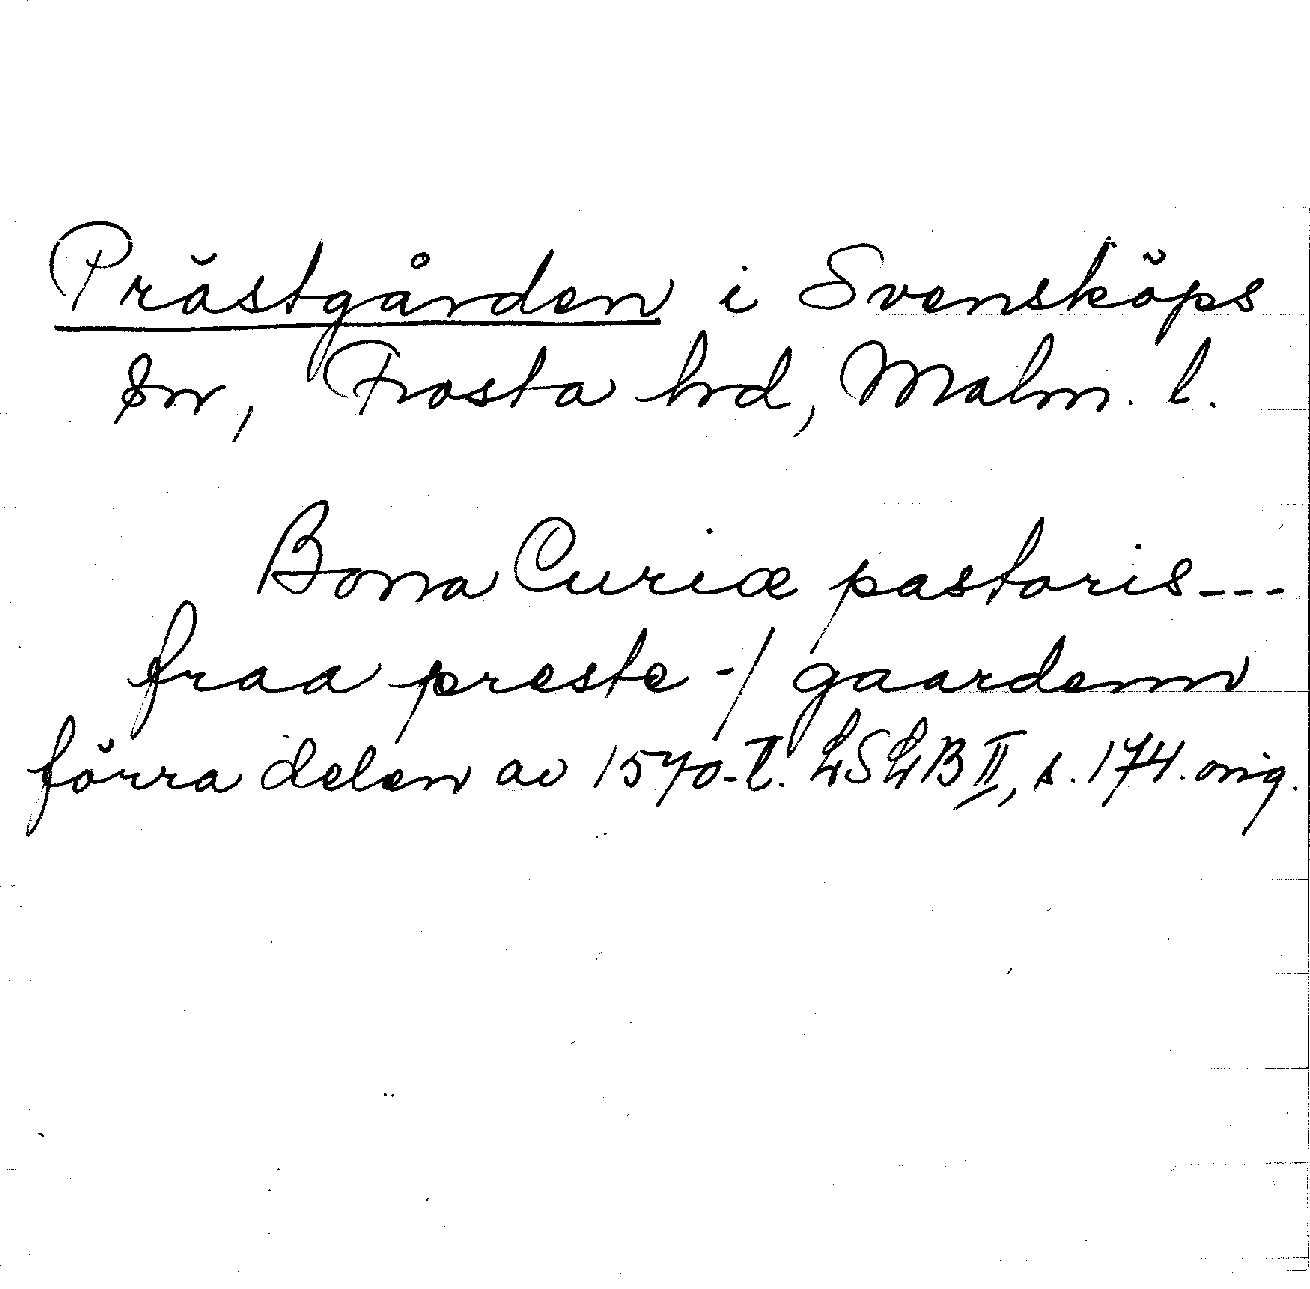 Prästgården i Svensköps
sn, Frosta hrd, Malm. l.
Bona Curiæ pastoris---
fraa preste-/gaardenn
förra delen av 1570-t. LSLB II, s. 174. orig.